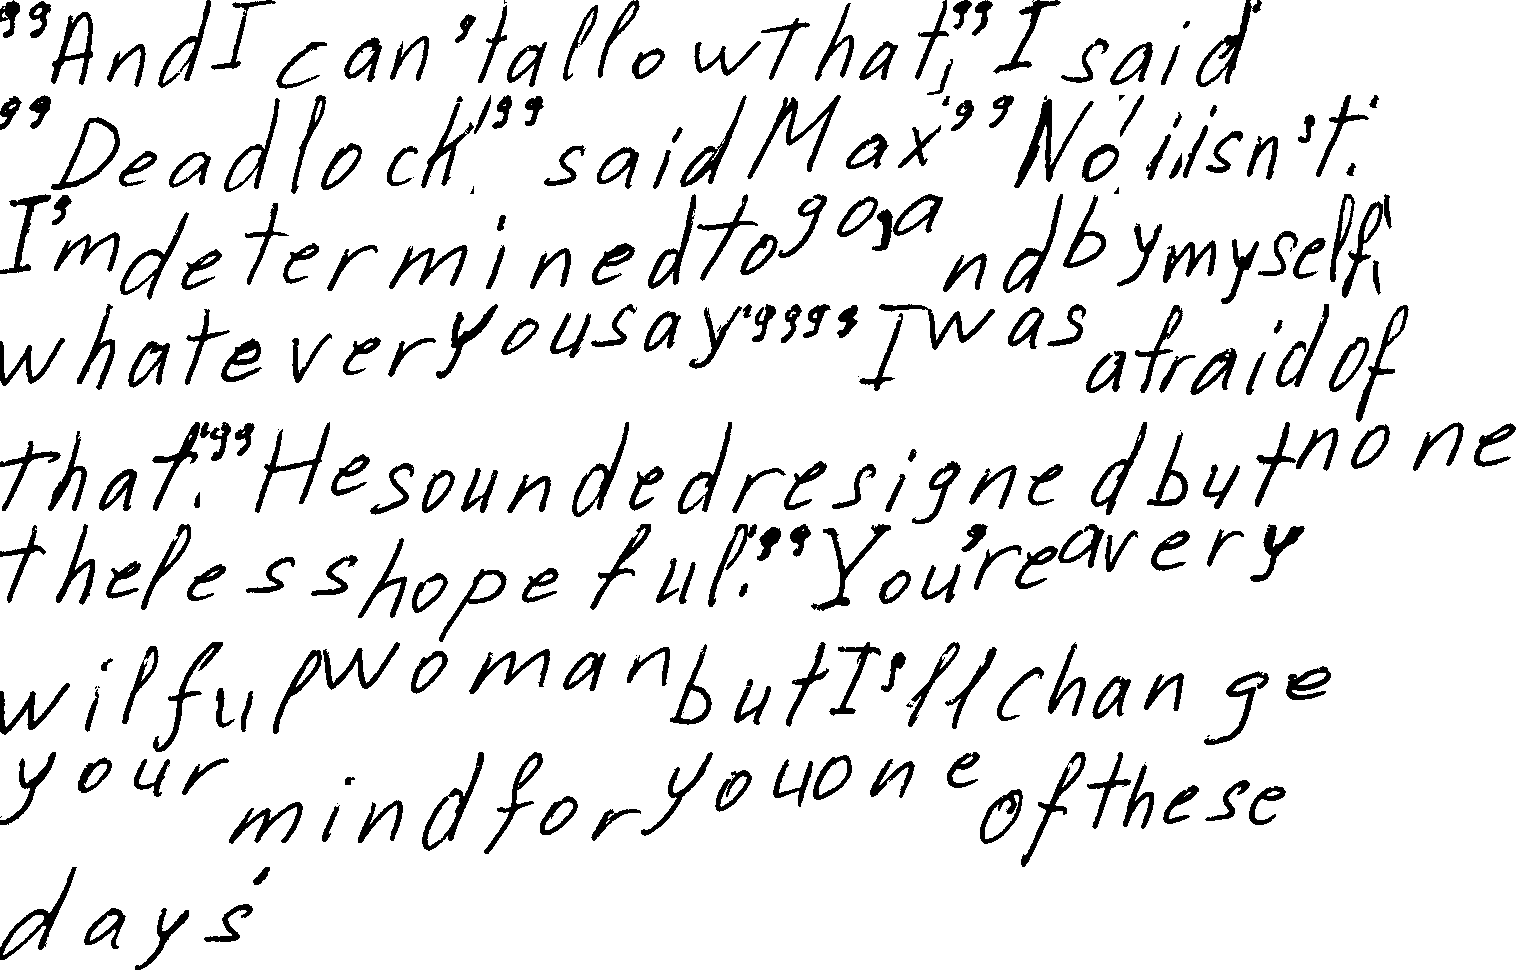 "And I can't allow that," I said.
"Deadlock!" said Max. "No! it isn't.
I'm determined to go, and by myself,
whatever you say." "I was afraid of
that." He sounded resigned but none
theless hopeful. "You're a very
wilful woman but I'll change
your mind for you one of these
days